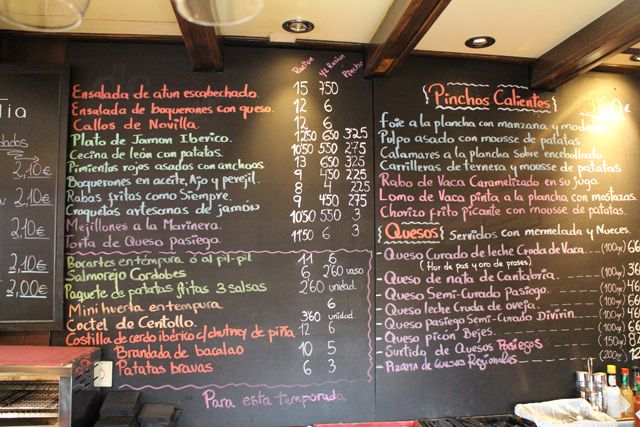 Tia
2,10€
2,10€
2,10€
2,10€
2,00€
Racion 1/2 Racion Pincho
Ensalada de atun escabechado. 15 750
Ensalada de boquerones con queso. 12 6
Callos de Novilla. 12 6
Plato de Jamon Iberico. 1250 650 325
Cecina de león con patatas. 1050 550 275
Pimientos rojos asados con anchoas 13 650 325
Boquerones en aceite, Ajo y perejil. 9 450 225
Rabas fritas como Siempre. 8 4 225
Croquetas artesanas de jamón 9 450 275
Mejillones a la Marinera. 1050 550 3
Torta de Queso pasiego. 1150 6 3
Bocartes en témpura ó al pil-pil 11 6
Salmorejo Cordobes 6 260 vaso
Paquete de patatas fritas 3 salsas 260 unidad.
Mini huerta en tempura 6
Coctel de Centollo. 360 unidad.
Costilla de cerdo ibérico c/chutney de piña 12 6
Brandada de bacalao 10 5
Patatas bravas 6 3
Para esta temporada
Pinchos Calientes 3'60€
foie a la plancha con manzana y modena
Pulpo asado con mousse de patatas.
Calamares a la plancha sobre encebollado.
Carrilleras de ternera y mousse de patatas
Rabo de Vaca Caramelizado en su jugo.
Lomo de Vaca pinta a la plancha con mostazas.
Chorizo frito picante con mousse de patatas.
Quesos Servidos con mermelada y Nueces.
- Queso Curado de leche Cruda de Vaca. (100gr)
(Flor de pas y oro de prases)
- Queso de nata de Cantabria. (100gr)
- Queso Semi-Curado Pasiego. (100gr)
- Queso leche Cruda de oveja. (100gr)
- Queso pasiego Semi-Curado Divirin (100gr)
- Queso picón Bejes. (100gr)
- Surtido de Quesos Pasiegos (150gr)
- Pizarra de Quesos Regionales (200gr)